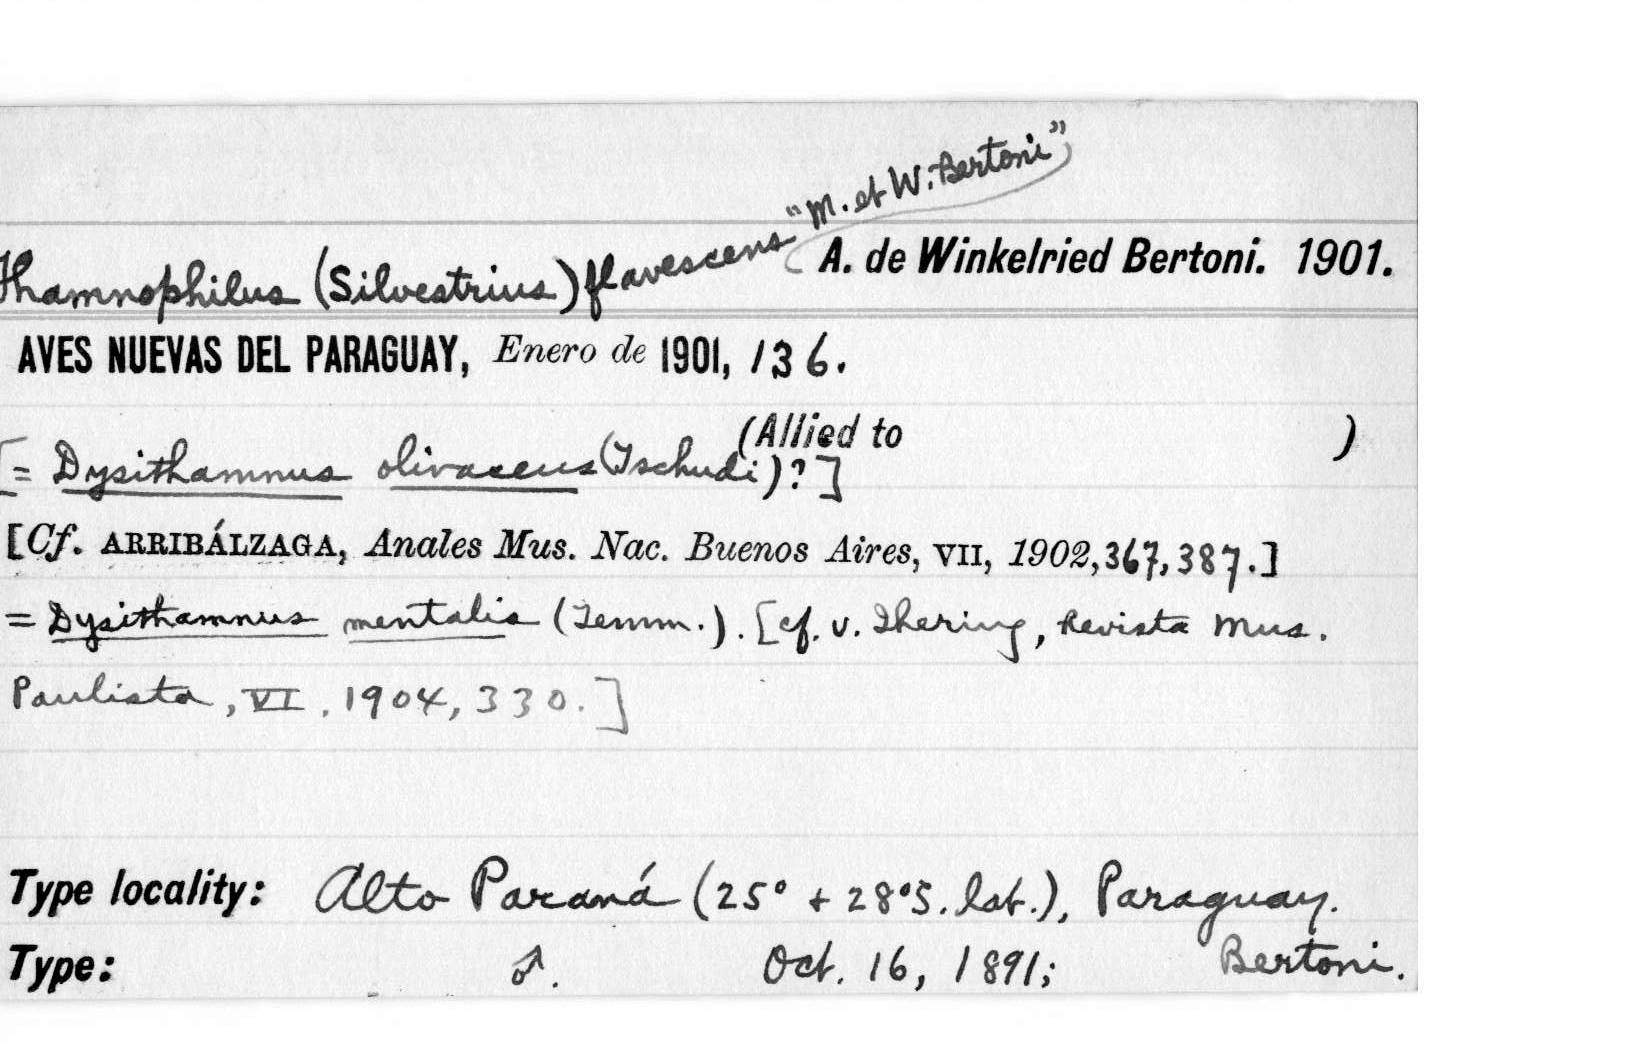 "M. et W. Bertoni"
Thamnophilus (Silvestrius) flavescens ( A. de Winkelried Bertoni. 1901.
AVES NUEVAS DEL PARAGUAY, Enero de 1901, 136.
(Allied to )
[= Dysithamnus olivaceus (Tschudi)?]
[Cf. ARRIBÁLZAGA, Anales Mus. Nac. Buenos Aires, VII, 1902, 367, 387.]
= Dysithamnus mentalis (Temm.). [cf. v. Ihering, Revista Mus.
Paulista, VI, 1904, 330.]
Type locality: Alto Paraná (25° + 28° S. lat.), Paraguay.
Type: ♂. Oct. 16, 1891; Bertoni.